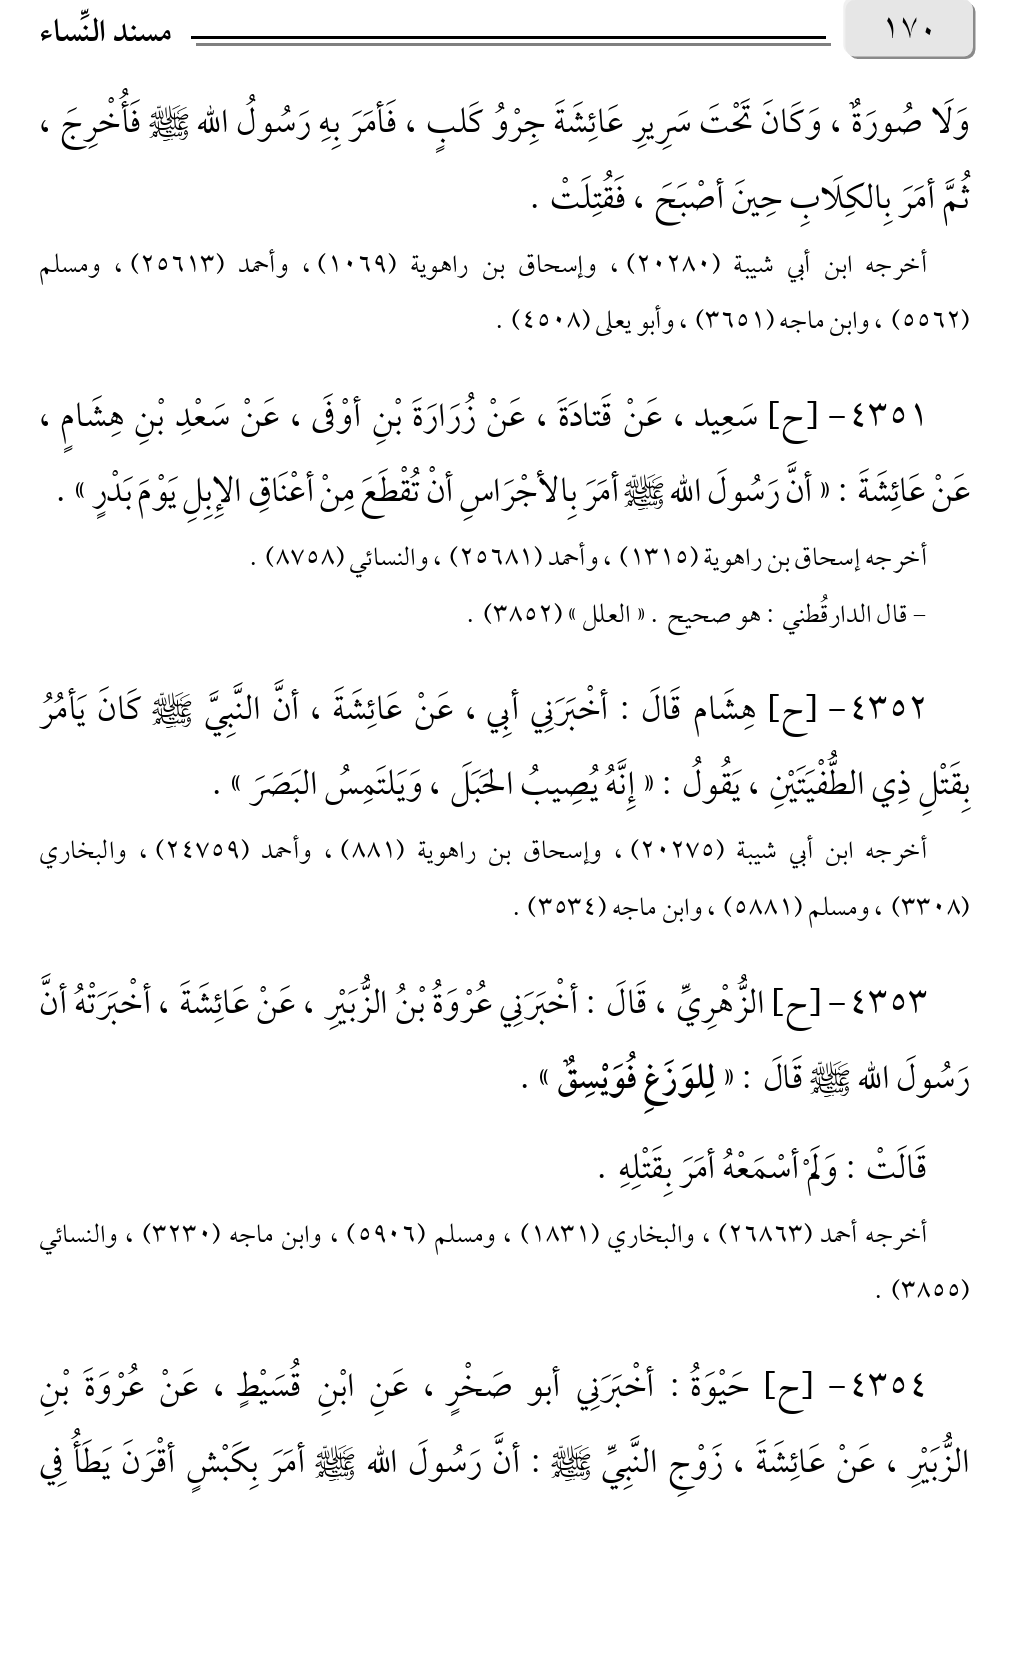 ١٧٠
مسند النِّساء
وَلَا صُورَةٌ ، وَكَانَ تَحْتَ سَرِيرِ عَائِشَةَ جِرْوُ كَلبٍ ، فَأمَرَ بِهِ رَسُولُ الله ﷺ فَأُخْرِجَ ،
ثُمَّ أمَرَ بِالكِلَابِ حِينَ أصْبَحَ ، فَقُتِلَتْ .
أخرجه ابن أبي شيبة (٢٠٢٨٠) ، وإسحاق بن راهوية (١٠٦٩) ، وأحمد (٢٥٦١٣) ، ومسلم
(٥٥٦٢) ، وابن ماجه (٣٦٥١) ، وأبو يعلى (٤٥٠٨) .
٤٣٥١- [ح] سَعِيد ، عَنْ قَتادَةَ ، عَنْ زُرَارَةَ بْنِ أوْفَى ، عَنْ سَعْدِ بْنِ هِشَامٍ ،
عَنْ عَائِشَةَ : « أنَّ رَسُولَ الله ﷺ أمَرَ بِالأجْرَاسِ أنْ تُقْطَعَ مِنْ أعْنَاقِ الإبِلِ يَوْمَ بَدْرٍ » .
أخرجه إسحاق بن راهوية (١٣١٥) ، وأحمد (٢٥٦٨١) ، والنسائي (٨٧٥٨) .
- قال الدارقُطني : هو صحيح . « العلل » (٣٨٥٢) .
٤٣٥٢- [ح] هِشَام قَالَ : أخْبَرَنِي أبِي ، عَنْ عَائِشَةَ ، أنَّ النَّبِيَّ ﷺ كَانَ يَأمُرُ
بِقَتْلِ ذِي الطُّفْيَتَيْنِ ، يَقُولُ : « إنَّهُ يُصِيبُ الحَبَلَ ، وَيَلتَمِسُ البَصَرَ » .
أخرجه ابن أبي شيبة (٢٠٢٧٥) ، وإسحاق بن راهوية (٨٨١) ، وأحمد (٢٤٧٥٩) ، والبخاري
(٣٣٠٨) ، ومسلم (٥٨٨١) ، وابن ماجه (٣٥٣٤) .
٤٣٥٣- [ح] الزُّهْرِيِّ ، قَالَ : أخْبَرَنِي عُرْوَةُ بْنُ الزُّبَيْرِ ، عَنْ عَائِشَةَ ، أخْبَرَتْهُ أنَّ
رَسُولَ الله ﷺ قَالَ : « لِلوَزَغِ فُوَيْسِقٌ » .
قَالَتْ : وَلَمْ أسْمَعْهُ أمَرَ بِقَتْلِهِ .
أخرجه أحمد (٢٦٨٦٣) ، والبخاري (١٨٣١) ، ومسلم (٥٩٠٦) ، وابن ماجه (٣٢٣٠) ، والنسائي
(٣٨٥٥) .
٤٣٥٤- [ح] حَيْوَةُ : أخْبَرَنِي أبو صَخْرٍ ، عَنِ ابْنِ قُسَيْطٍ ، عَنْ عُرْوَةَ بْنِ
الزُّبَيْرِ ، عَنْ عَائِشَةَ ، زَوْجِ النَّبِيِّ ﷺ : أنَّ رَسُولَ الله ﷺ أمَرَ بِكَبْشٍ أقْرَنَ يَطَأُ فِي